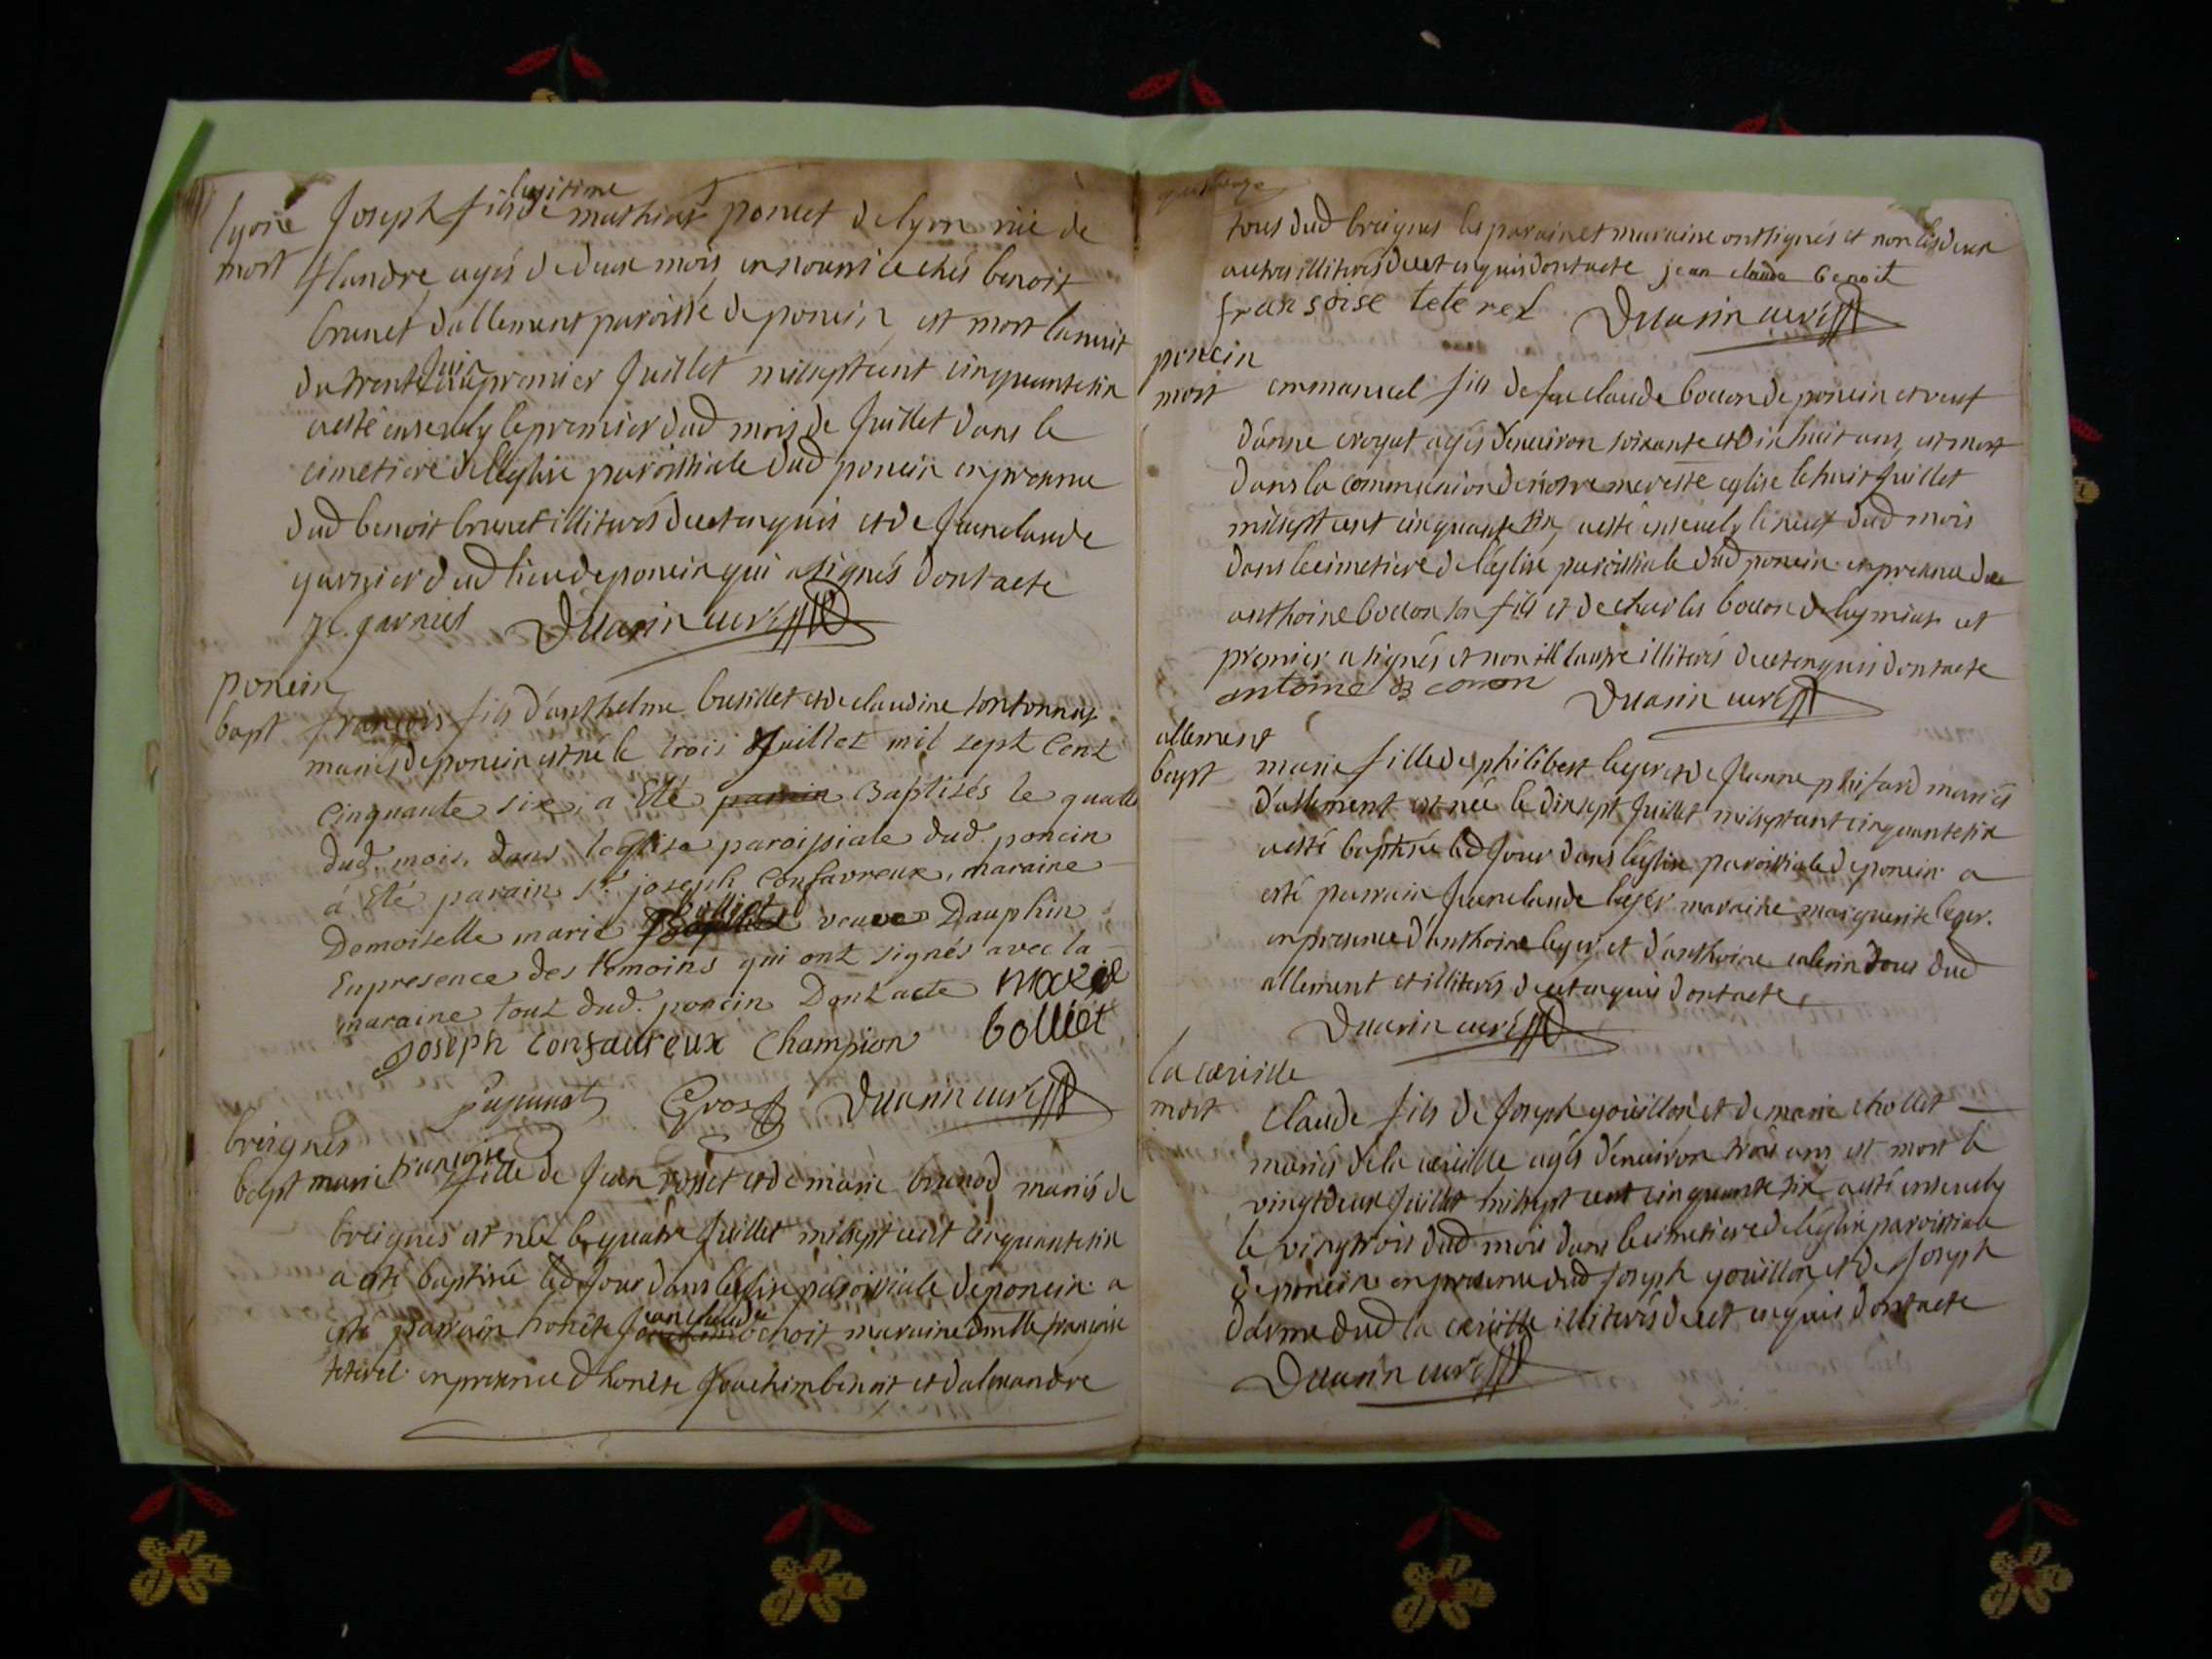 lyon
mort
Joseph fils legitime de mathias poncet de lyon rüe de
flandre agés de deux mois en nourrice chés benoit
brunet dallement paroisse de poncin est mort la nuit
du trente juin au premier Juillet mil sept cent cinquante six
a esté ensevely le premier dud mois de Juillet dans le
cimetiere de l'eglise paroissiale dud poncin en presence
dud benoit brunet illiterés de ce enquis et de Jean claude
garnier dud lieu de poncin qui a signés dont acte
J C. garnier Duarin curé
poncin
bapt
françois fils d'anthelme busillet et de claudine
mariés de poncin est né le trois Juillet mil sept Cent
Cinquante six, a Eté parain Baptisés le quatre
dud. mois. dans l'eglise paroissiale dud. poncin
á Eté parain sr. joseph Confavreux, maraine
Demoiselle marie bolliet veuve Dauphin
En presence des témoins qui ont signés avec la
maraine tout dud. poncin Dont acte marie
Joseph Confavreux Champion bolliet
Gros Duarin curé
breignes
bapt
marie françoise fille de Jean rosset et de marie brunod mariés de
breignes est née le quatre Juillet mil sept cent cinquante six
a eté baptisée led Jour dans l'eglise paroissiale de poncin a
esté parrain honéte Jean claude benoit maraine dmlle françoise
teterel en presence d honéte Joachim benoit et d'alexandre
tous dud breignes les parain et maraine ont signés et non les deux
autres illiterés de ce enquis dont acte jean claude benoit
fransoise teterel Duarin curé
poncin
mort
emmanuel fils de feu claude bocon de poncin et veuf
d'anne croyat agés d'environ soixante et dix huit ans, est mort
dans la communion de nôtre mere ste eglise le huit Juillet
mil sept cent cinquante six, a esté ensevely le neuf dud mois
dans le cimetiere de l'eglise paroissiale dud poncin en presence de
anthoine bocon son fils et de charles bocon de leymiat et
premier a signés et non l'autre illiterés de ce enquis dont acte
antoine bocon Duarin curé
allement
bapt
marie fille de philibert leger et de Jeanne mariés
d'allement est née le dix sept Juillet mil sept cent cinquante six
a esté baptisée led Jour dans l'eglise paroissiale de poncin a
esté parrain Jean claude leger maraine marguerite leger.
en presence d'anthoine leger et d'anthoine tous dud
allement et illiterés de ce enquis dont acte
Duarin curé
la cueille
mort
Claude fils de Joseph goüillon et de marie chollet
mariés de la cueille agés d'environ trois ans est mort le
vingt deux Juillet mil sept cent cinquante six a esté ensevely
le vingt trois dud mois dans le cimetiere de l'eglise paroissiale
de poncin en presence dud Joseph goüillon, et de Joseph
darme dud la cueille illiterés de ce enquis dont acte
Duarin curé